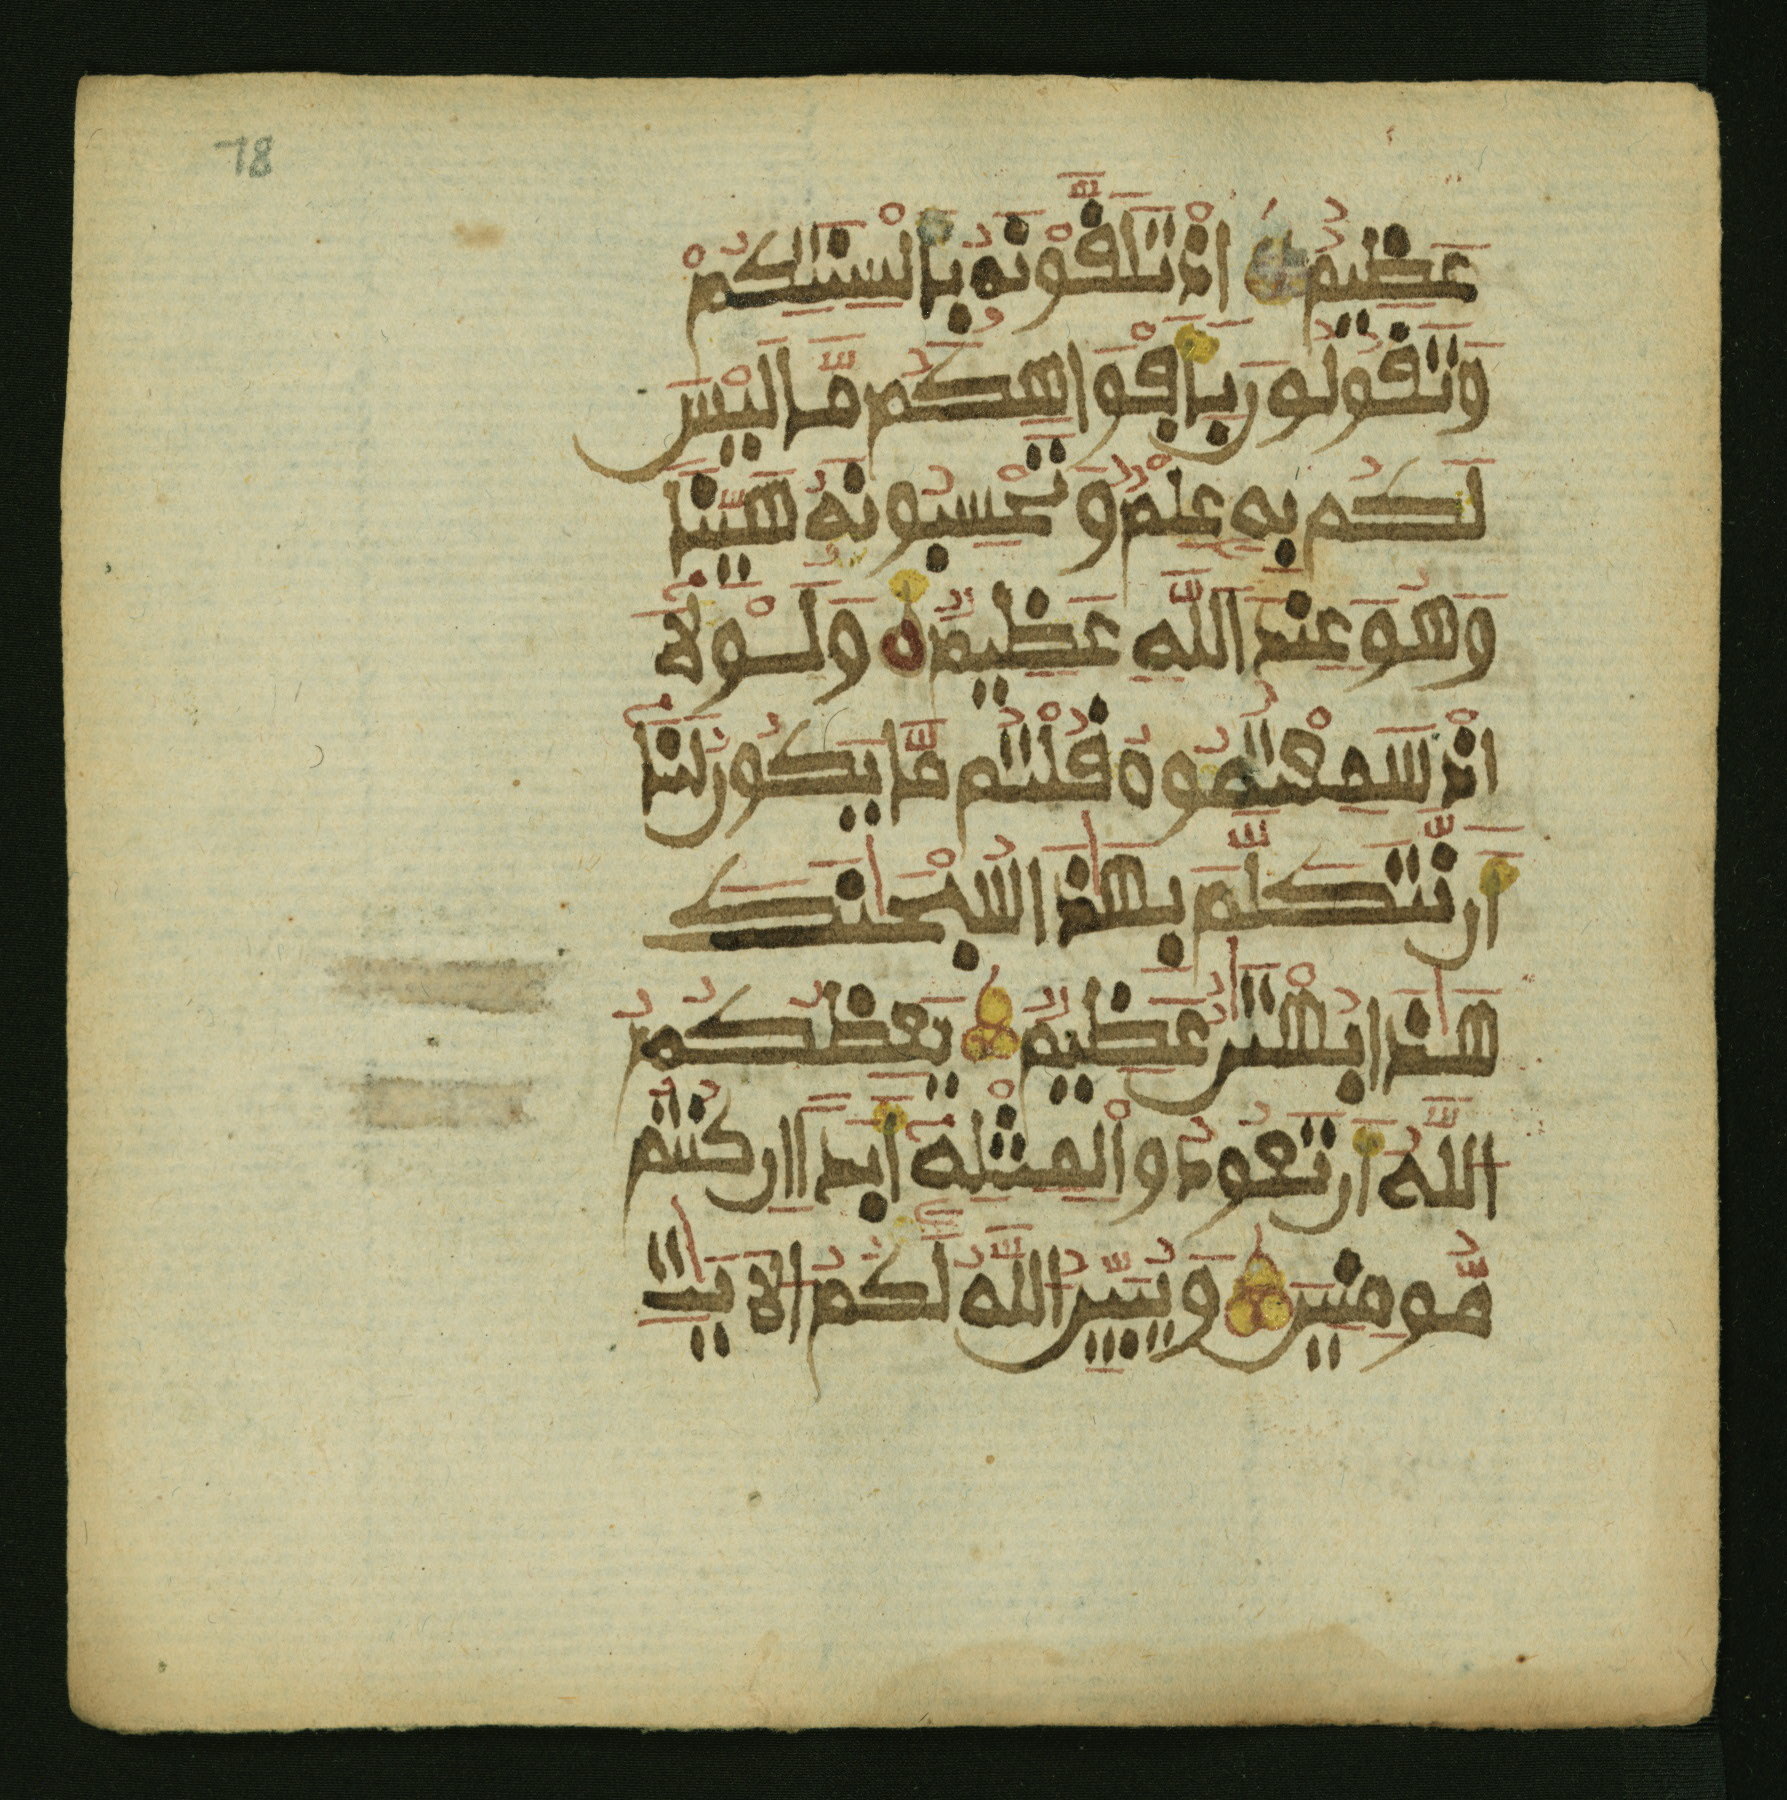 78
عَظِيمٌ اِذْ تَلَقَّوْنَهُۥ بِأَلْسِنَتِكُمْ
وَتَقُولُونَ بِأَفْوَاهِكُم مَّا لَيْسَ
لَكُم بِهِۦ عِلْمٌ وَتَحْسِبُونَهُۥ هَيِّنًا
وَهُوَ عِندَ اللَّهِ عَظِيمٌ وَلَوْلَآ
اِذْ سَمِعْتُمُوهُ قُلْتُم مَّا يَكُونُ لَنَآ
أَن نَّتَكَلَّمَ بِهَٰذَا سُبْحَٰنَكَ
هَٰذَا بُهْتَٰنٌ عَظِيمٌ يَعِظُكُمُ
اللَّهُ أَن تَعُودُوا لِمِثْلِهِۦٓ أَبَدًا اِن كُنتُم
مُّومِنِينَ وَيُبَيِّنُ اللَّهُ لَكُمُ الْأَيَٰتِ